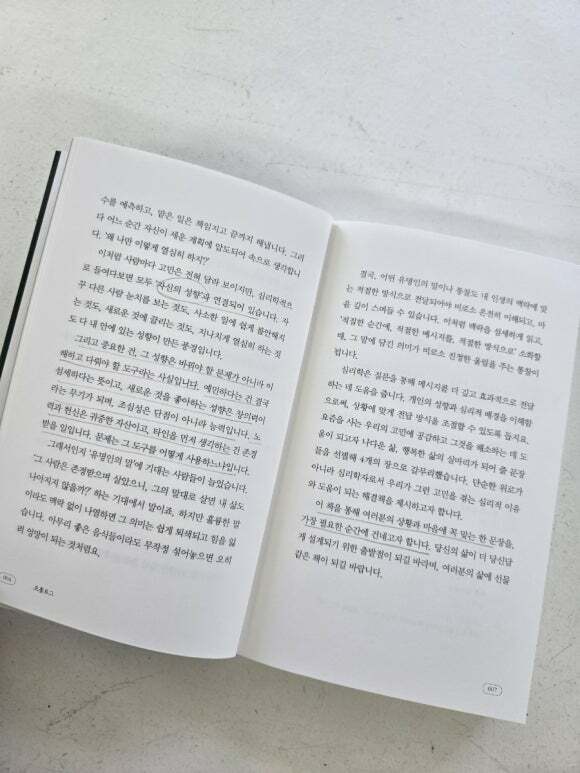 수를 예측하고, 맡은 일은 책임지고 끝까지 해냅니다. 그러
다 어느 순간 자신이 세운 계획에 압도되어 속으로 생각합니
다. '왜 나만 이렇게 열심히 하지?'
이처럼 사람마다 고민은 전혀 달라 보이지만, 심리학적으
로 들여다보면 모두 '자신의 성향'과 연결되어 있습니다. 자
꾸 다른 사람 눈치를 보는 것도, 사소한 일에 쉽게 불안해지
는 것도, 새로운 것에 끌리는 것도, 지나치게 열심히 하는 것
도 다 내 안에 있는 성향이 만든 풍경입니다.
그리고 중요한 건, 그 성향은 바뀌야 할 문제가 아니라 이
해하고 다뤄야 할 도구라는 사실입니다. 예민하다는 건 결국
섬세하다는 뜻이고, 새로운 것을 좋아하는 성향은 창의력이
라는 무기가 되며, 조심성은 단점이 아니라 능력입니다. 노
력과 헌신은 귀중한 자산이고, 타인을 먼저 생각하는 건 존경
받을 일입니다. 문제는 그 도구를 어떻게 사용하느냐입니다.
그래서인지 '유명인의 말'에 기대는 사람들이 늘었습니다.
'그 사람은 존경받으며 살았으니, 그의 말대로 살면 내 삶도
나아지지 않을까?' 하는 기대에서 말이죠. 하지만 훌륭한 말
이라도 맥락 없이 나열하면 그 의미는 쉽게 퇴색되고 힘을 잃
습니다. 아무리 좋은 음식들이라도 무작정 섞어놓으면 오히
려 엉망이 되는 것처럼요.
006
프롤로그
결국, 어떤 유명인의 말이나 통찰도 내 인생의 맥락에 맞
는 적절한 방식으로 전달되어야 비로소 온전히 이해되고, 마
음 깊이 스며들 수 있습니다. 이처럼 맥락을 섬세하게 읽고,
'적절한 순간에, 적절한 메시지를, 적절한 방식으로' 소화할
때, 그 말에 담긴 의미가 비로소 진정한 울림을 주는 통찰이
됩니다.
심리학은 질문을 통해 메시지를 더 깊고 효과적으로 전달
하는 데 도움을 줍니다. 개인의 성향과 심리적 배경을 이해함
으로써, 상황에 맞게 전달 방식을 조절할 수 있도록 돕지요.
요즘을 사는 우리의 고민에 공감하고 그것을 해소하는 데 도
움이 되고자 나다운 삶, 행복한 삶의 실마리가 되어 줄 문장
들을 선별해 4개의 장으로 갈무리했습니다. 단순한 위로가
아니라 심리학자로서 우리가 그런 고민을 겪는 심리적 이유
와 도움이 되는 해결책을 제시하고자 합니다.
이 책을 통해 여러분의 상황과 마음에 꼭 맞는 한 문장을,
가장 필요한 순간에 건네고자 합니다. 당신의 삶이 더 당신답
게 설계되기 위한 출발점이 되길 바라며, 여러분의 삶에 선물
같은 책이 되길 바랍니다.
007